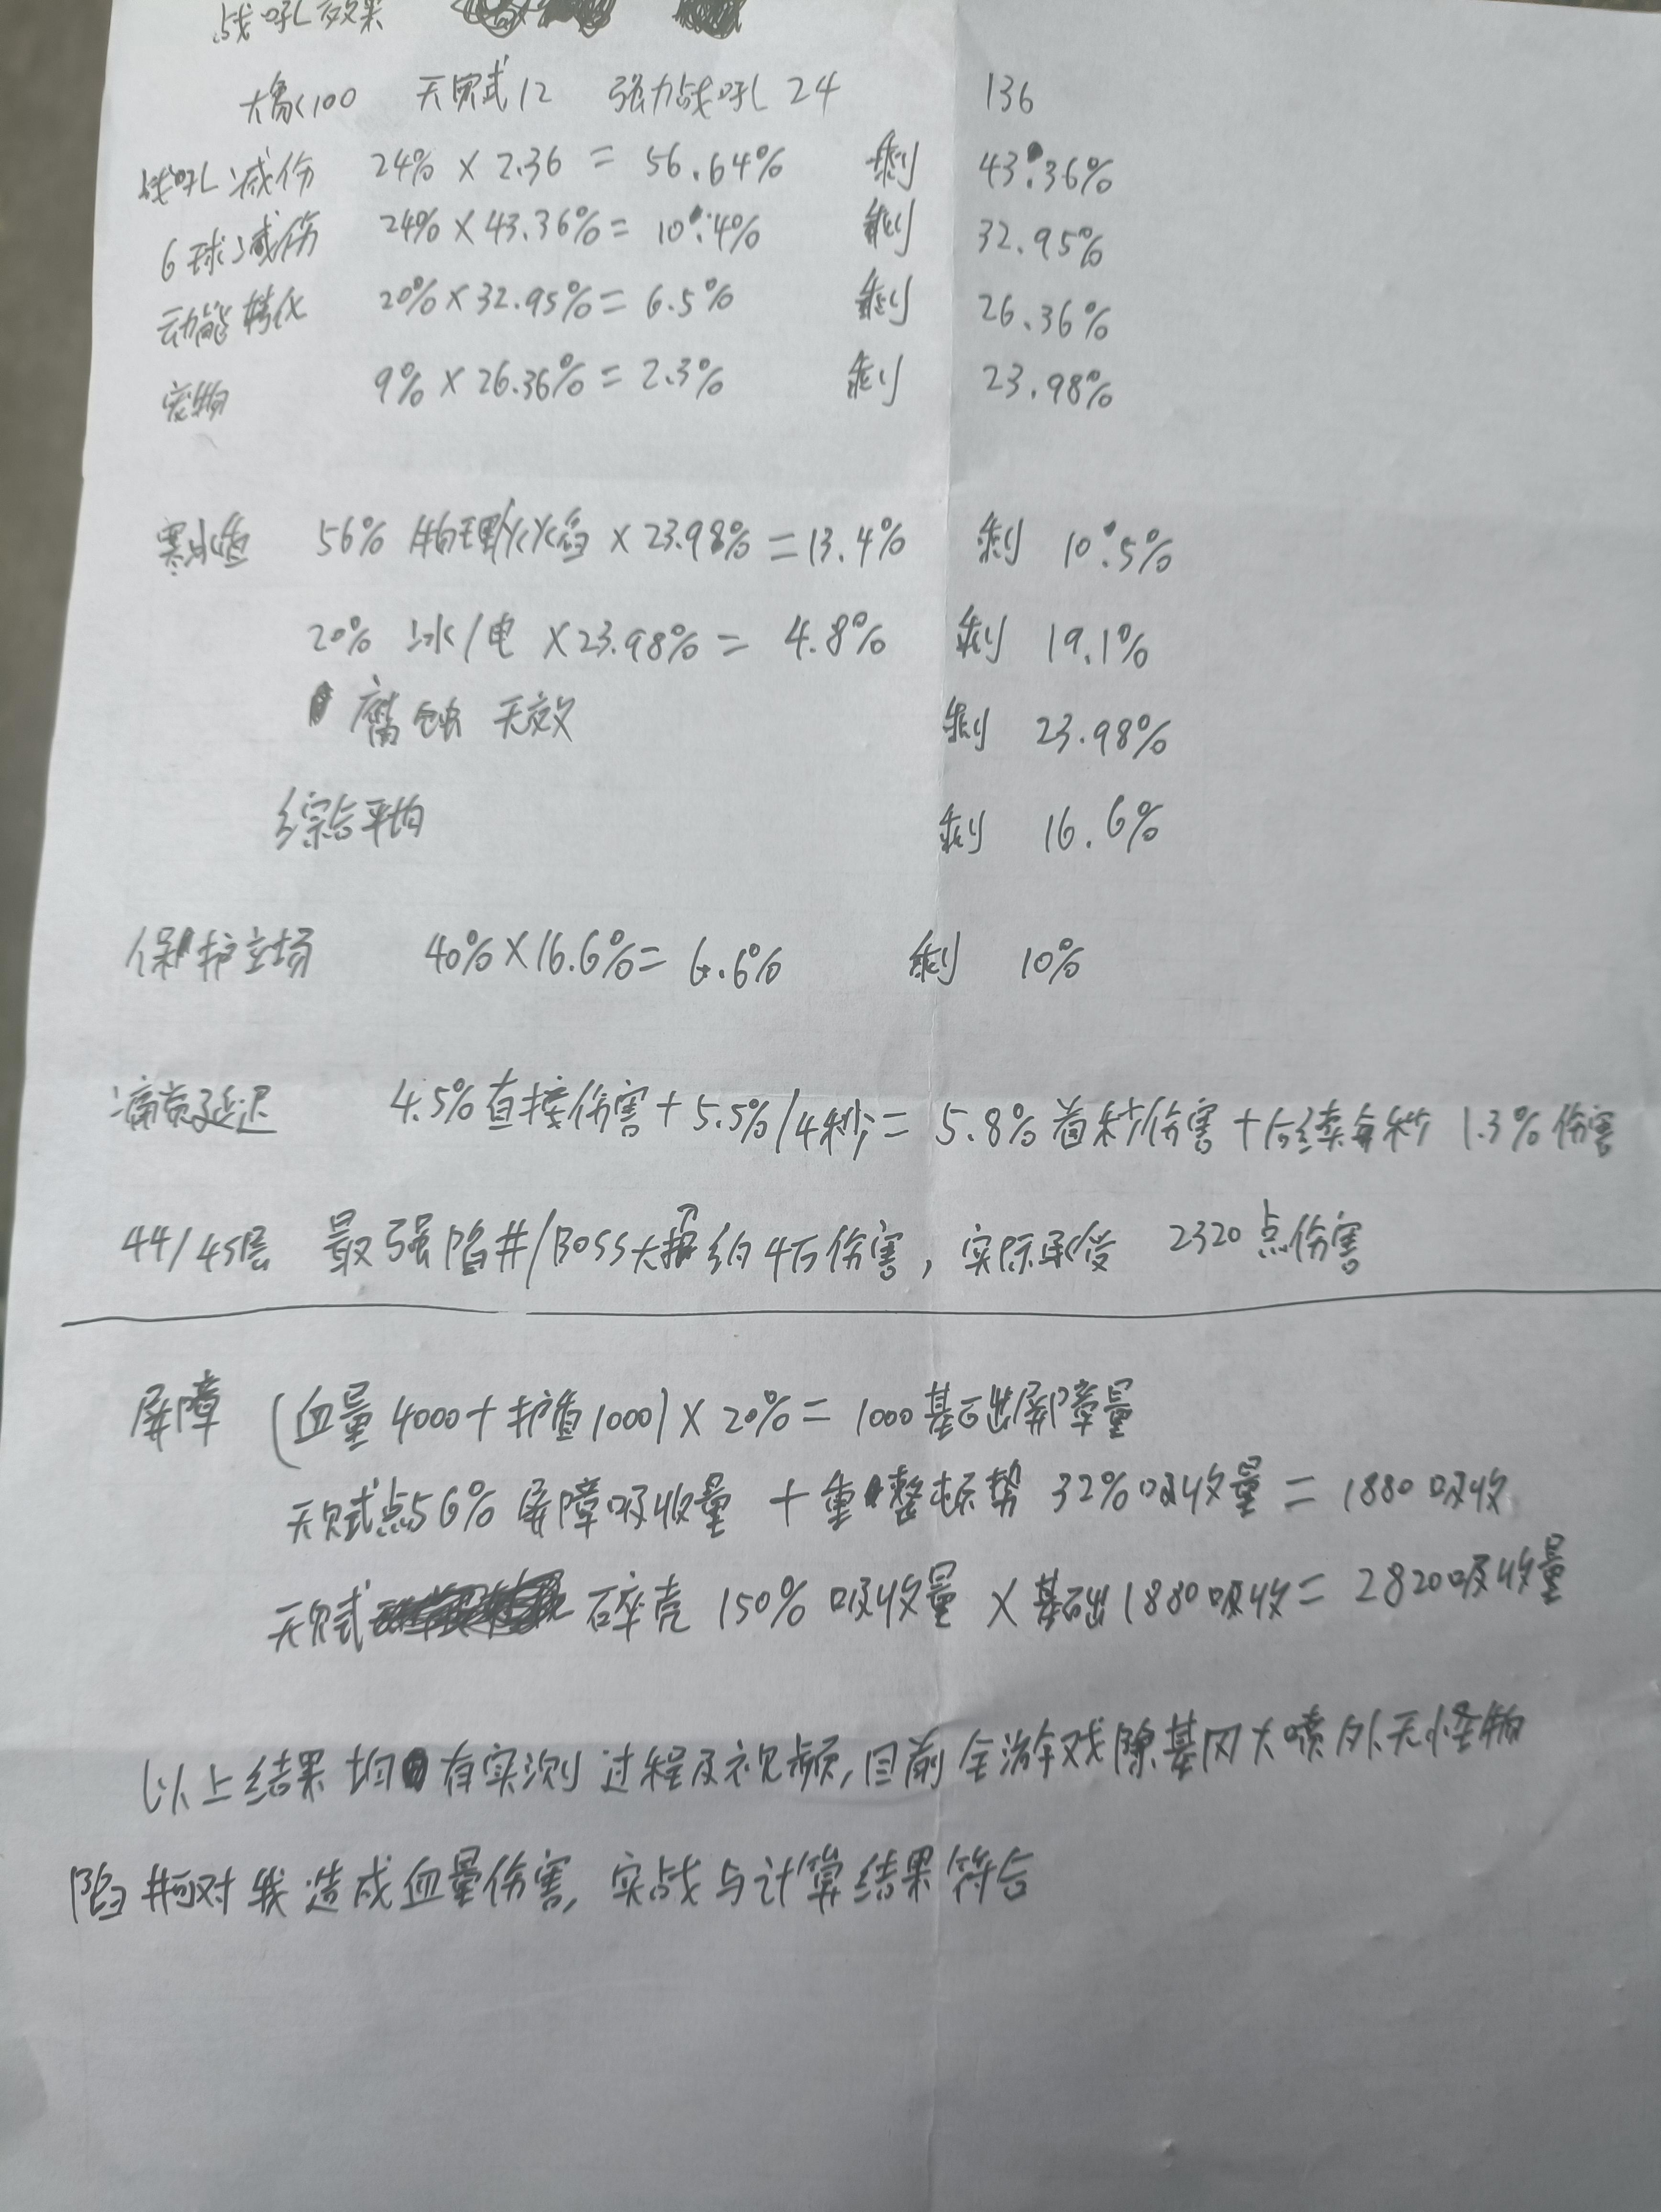 战吼效果
大象100 天赋12 强力战吼 24 136
战吼减伤 24% × 2.36 = 56.64% 剩 43.36%
6球减伤 24% × 43.36% = 10.4% 剩 32.95%
动能转化 20% × 32.95% = 6.5% 剩 26.36%
宠物 9% × 26.36% = 2.3% 剩 23.98%
56% 物理/火焰 × 23.98% = 13.4% 剩 10.5%
20% 冰/电 × 23.98% = 4.8% 剩 19.1%
腐蚀 无效 剩 23.98%
综合平均 剩 16.6%
保护立场 40% × 16.6% = 6.6% 剩 10%
痛苦延迟 4.5%直接伤害 + 5.5%/4秒 = 5.8%首秒伤害 + 后续每秒 1.3%伤害
44/45层 最强陷井/BOSS大招约4万伤害, 实际承受 2320点伤害
屏障 (血量4000+护盾1000) × 20% = 1000基础屏障量
天赋点56%屏障吸收量 + 重整态势 32%吸收量 = 1880吸收
天赋 碎壳 150%吸收量 × 基础1880吸收 = 2820吸收量
以上结果均有实测过程及视频, 目前全游戏除基冈大喷外无怪物
陷井可对我造成血量伤害, 实战与计算结果符合